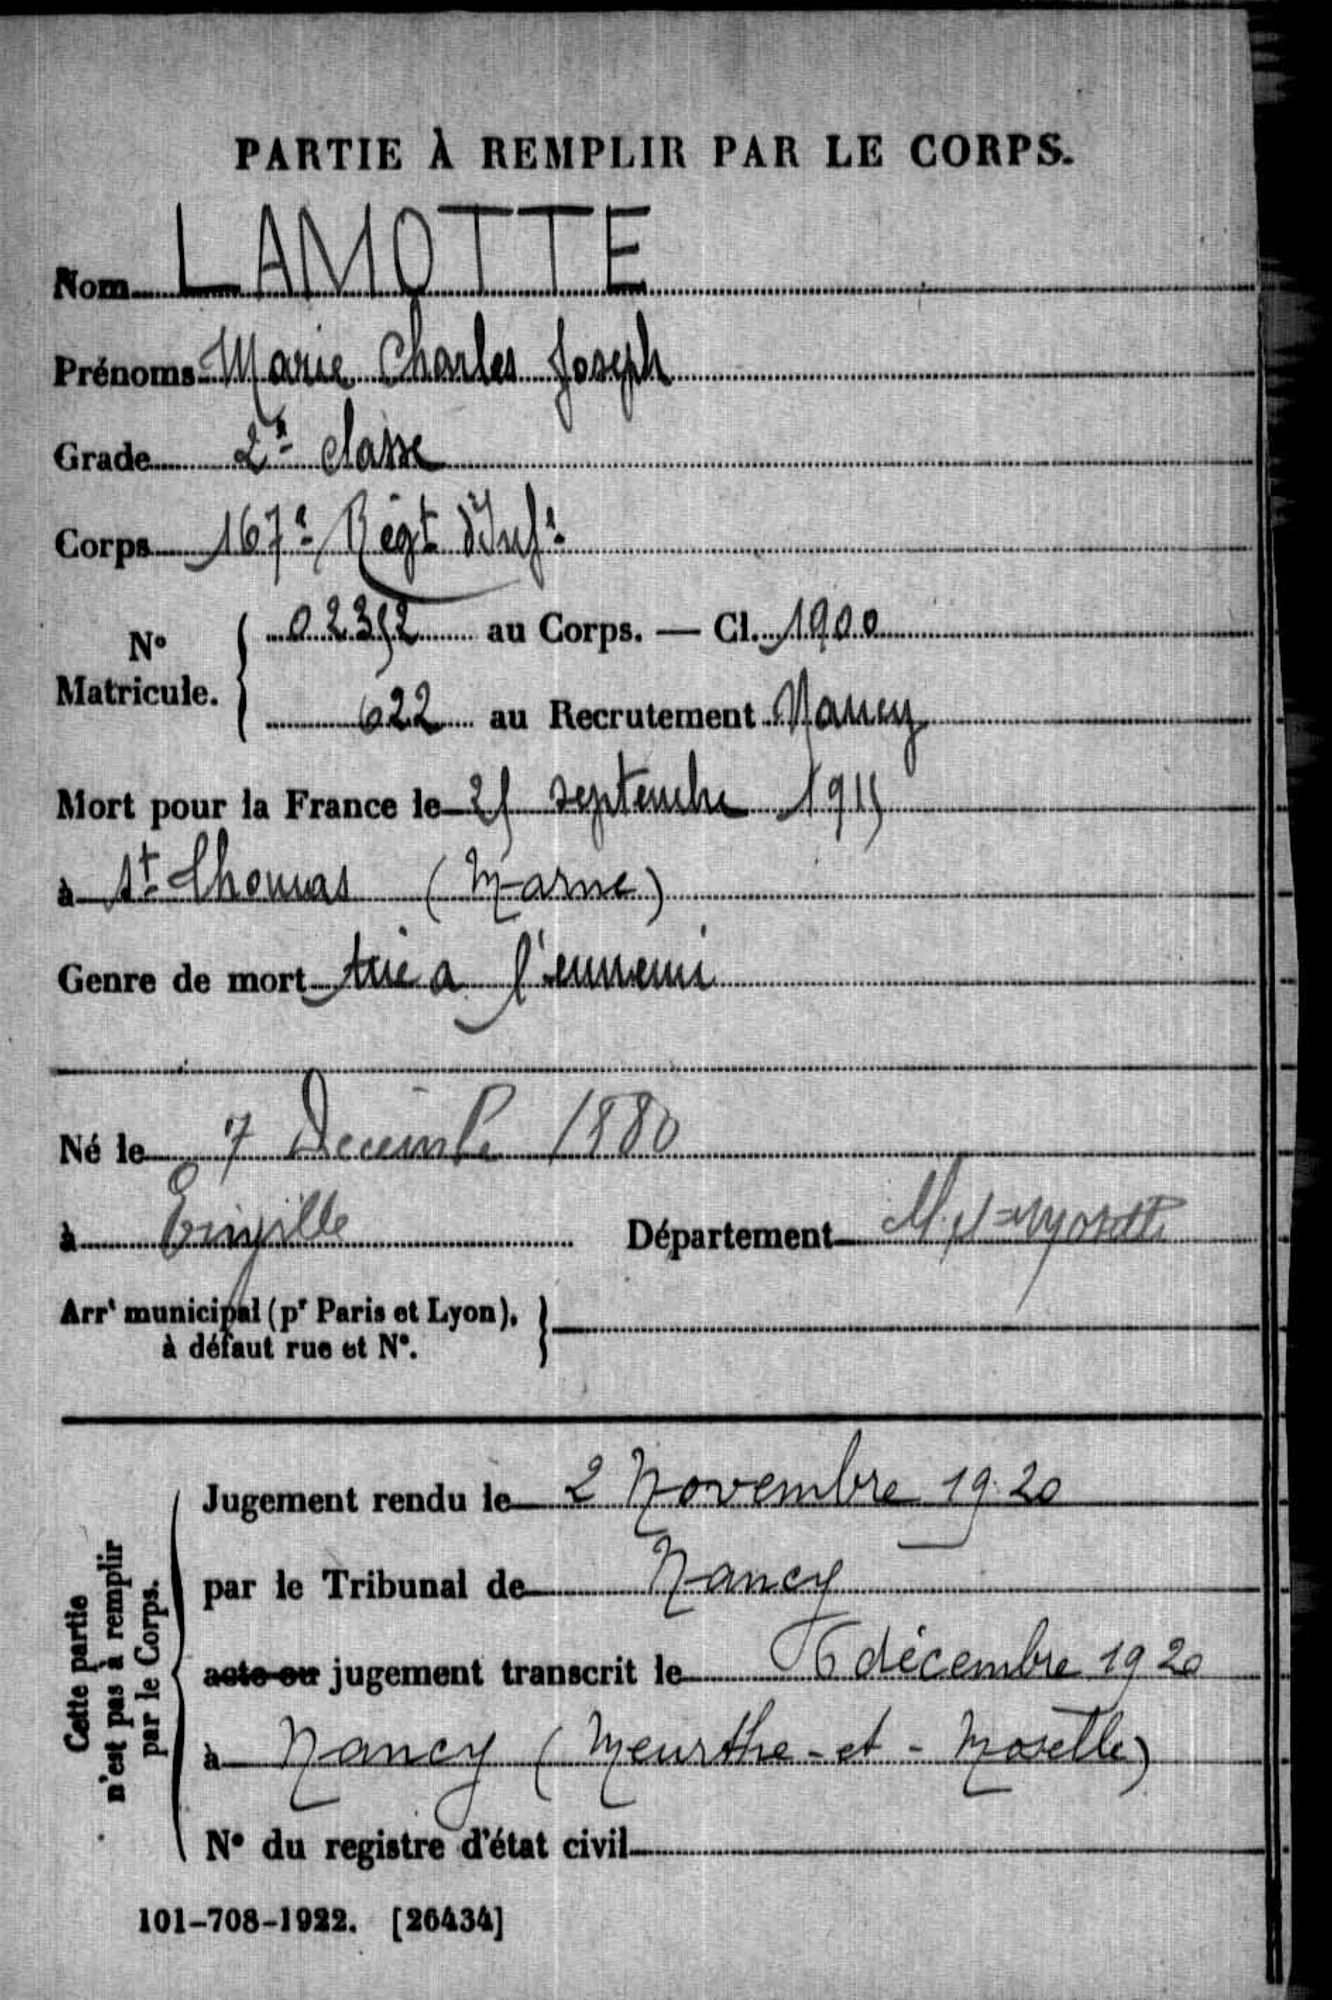 PARTIE À REMPLIR PAR LE CORPS.
Nom LAMOTTE
Prénoms Marie Charles Joseph
Grade 2e classe
Corps 167e Régt d'Infie
N° Matricule. 02352 au Corps. — Cl. 1900
622 au Recrutement Nancy
Mort pour la France le 25 septembre 1915
à St Thomas (Marne)
Genre de mort tué a l'ennemi
Né le 7 Décembre 1880
à Einville Département M. et Moselle
Arrt municipal (pr Paris et Lyon), à défaut rue et N°.
Cette partie n'est pas à remplir par le Corps.
Jugement rendu le 2 Novembre 1920
par le Tribunal de Nancy
acte ou jugement transcrit le 6 décembre 1920
à Nancy (Meurthe-et-Moselle)
N° du registre d'état civil
101-708-1922. [26434]